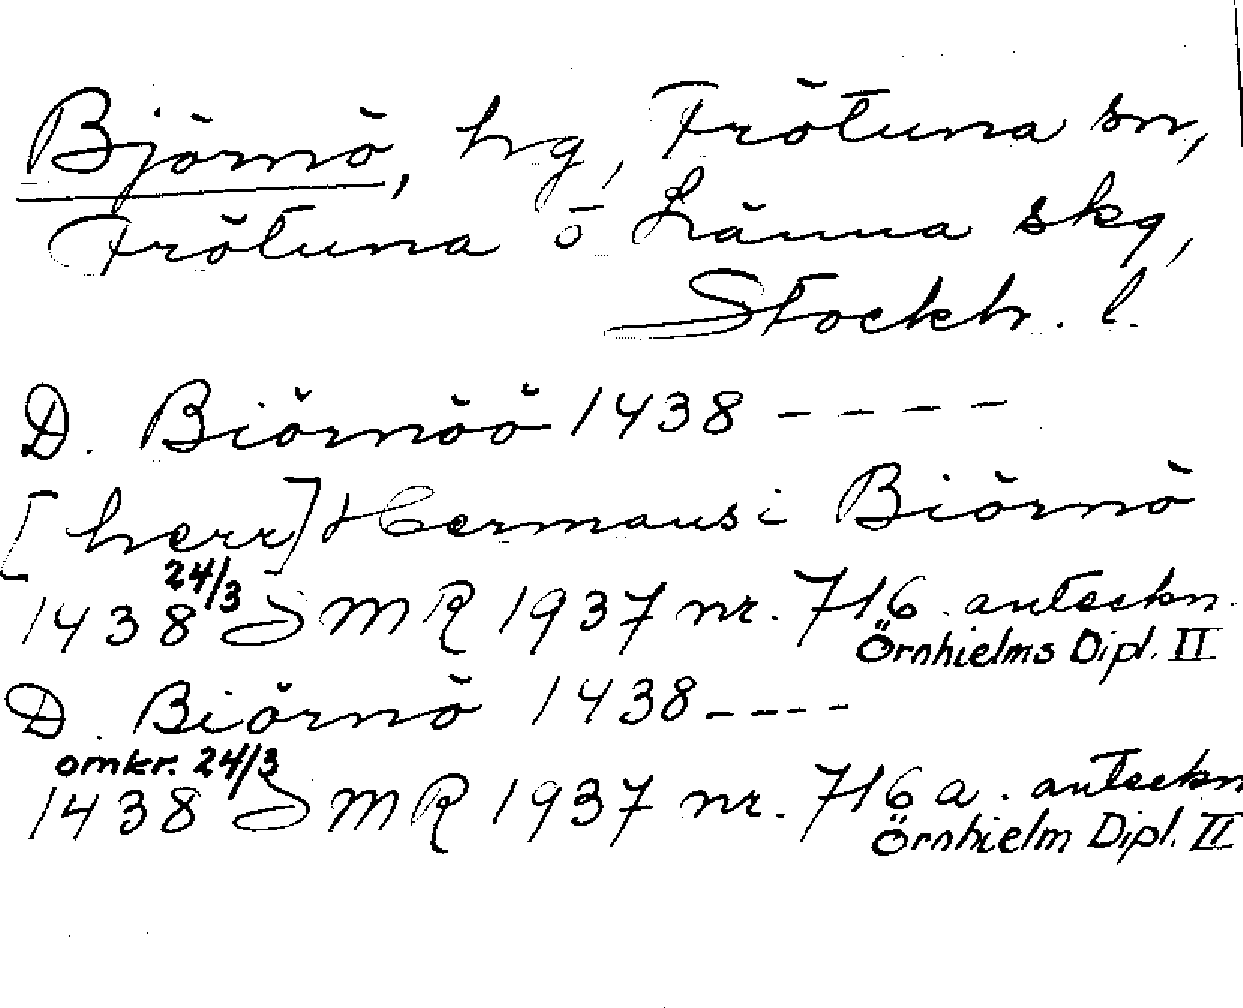 Björnö, hg, Frötuna sn,
Frötuna o Länna skg,
Stockh. l.
D. Biörnöö 1438 - - - -
[herr] Hermans i Biörnö
24/3
1438 SMR 1937 nr. 716. anteckn.
Örnhielms Dipl. II
D. Biörnö 1438 - - - -
omkr. 24/3
1438 SMR 1937 nr. 716 a. anteckn
Örnhielm Dipl. II